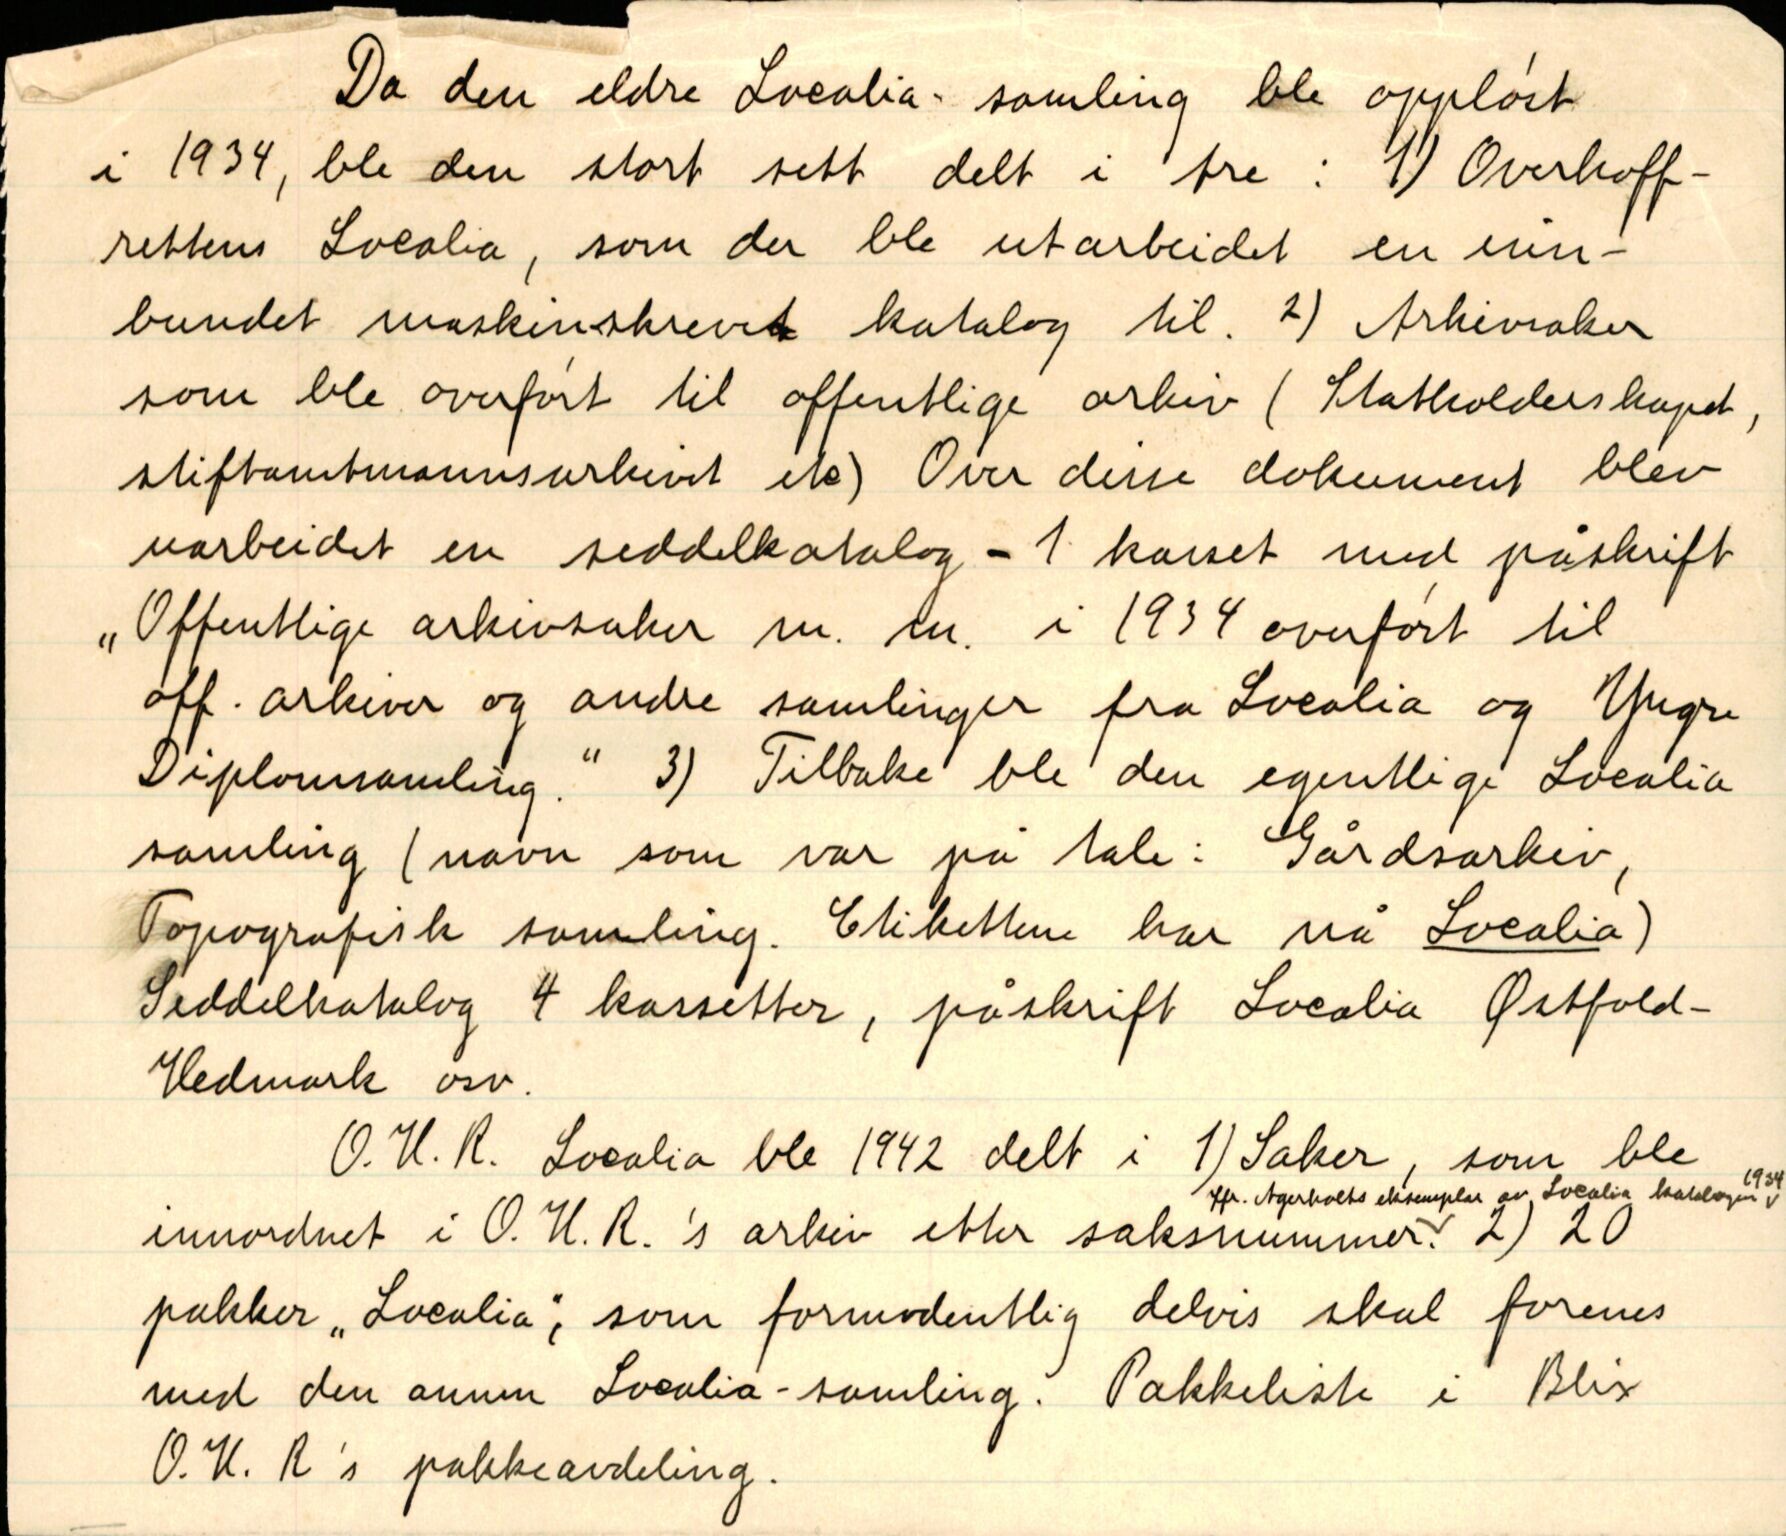 Da den eldre Localia-samling ble oppløst
i 1934, ble den stort sett delt i tre : 1) Overhoff-
rettens Localia, som der ble utarbeidet en inn-
bundet maskinskrevet katalog til. 2) Arkivsaker
som ble overført til offentlige arkiv (Statholderskapet,
stiftamtmannsarkivet etc) Over disse dokument blev
uarbeidet en seddelkatalog - 1 kasset med påskrift
„Offentlige arkivsaker m. m. i 1934 overført til
off. arkiver og andre samlinger fra Localia og Yngre
Diplomsamling." 3) Tilbake ble den egentlige Localia
samling (navn som var på tale: Gårdsarkiv,
Topografisk samling. Etikettene har nå Localia)
Seddelkatalog 4 kassetter, påskrift Localia Østfold-
Hedmark osv.
O. H. R. Localia ble 1942 delt i 1) Saker, som ble
jfr. Agerholts eksemplar av Localia katalogen 1934
innordnet i O. H. R.'s arkiv etter saksnummer. 2) 20
pakker „Localia", som formodentlig delvis skal forenes
med den annen Localia-samling. Pakkeliste i Blix
O. H. R's pakkeavdeling.